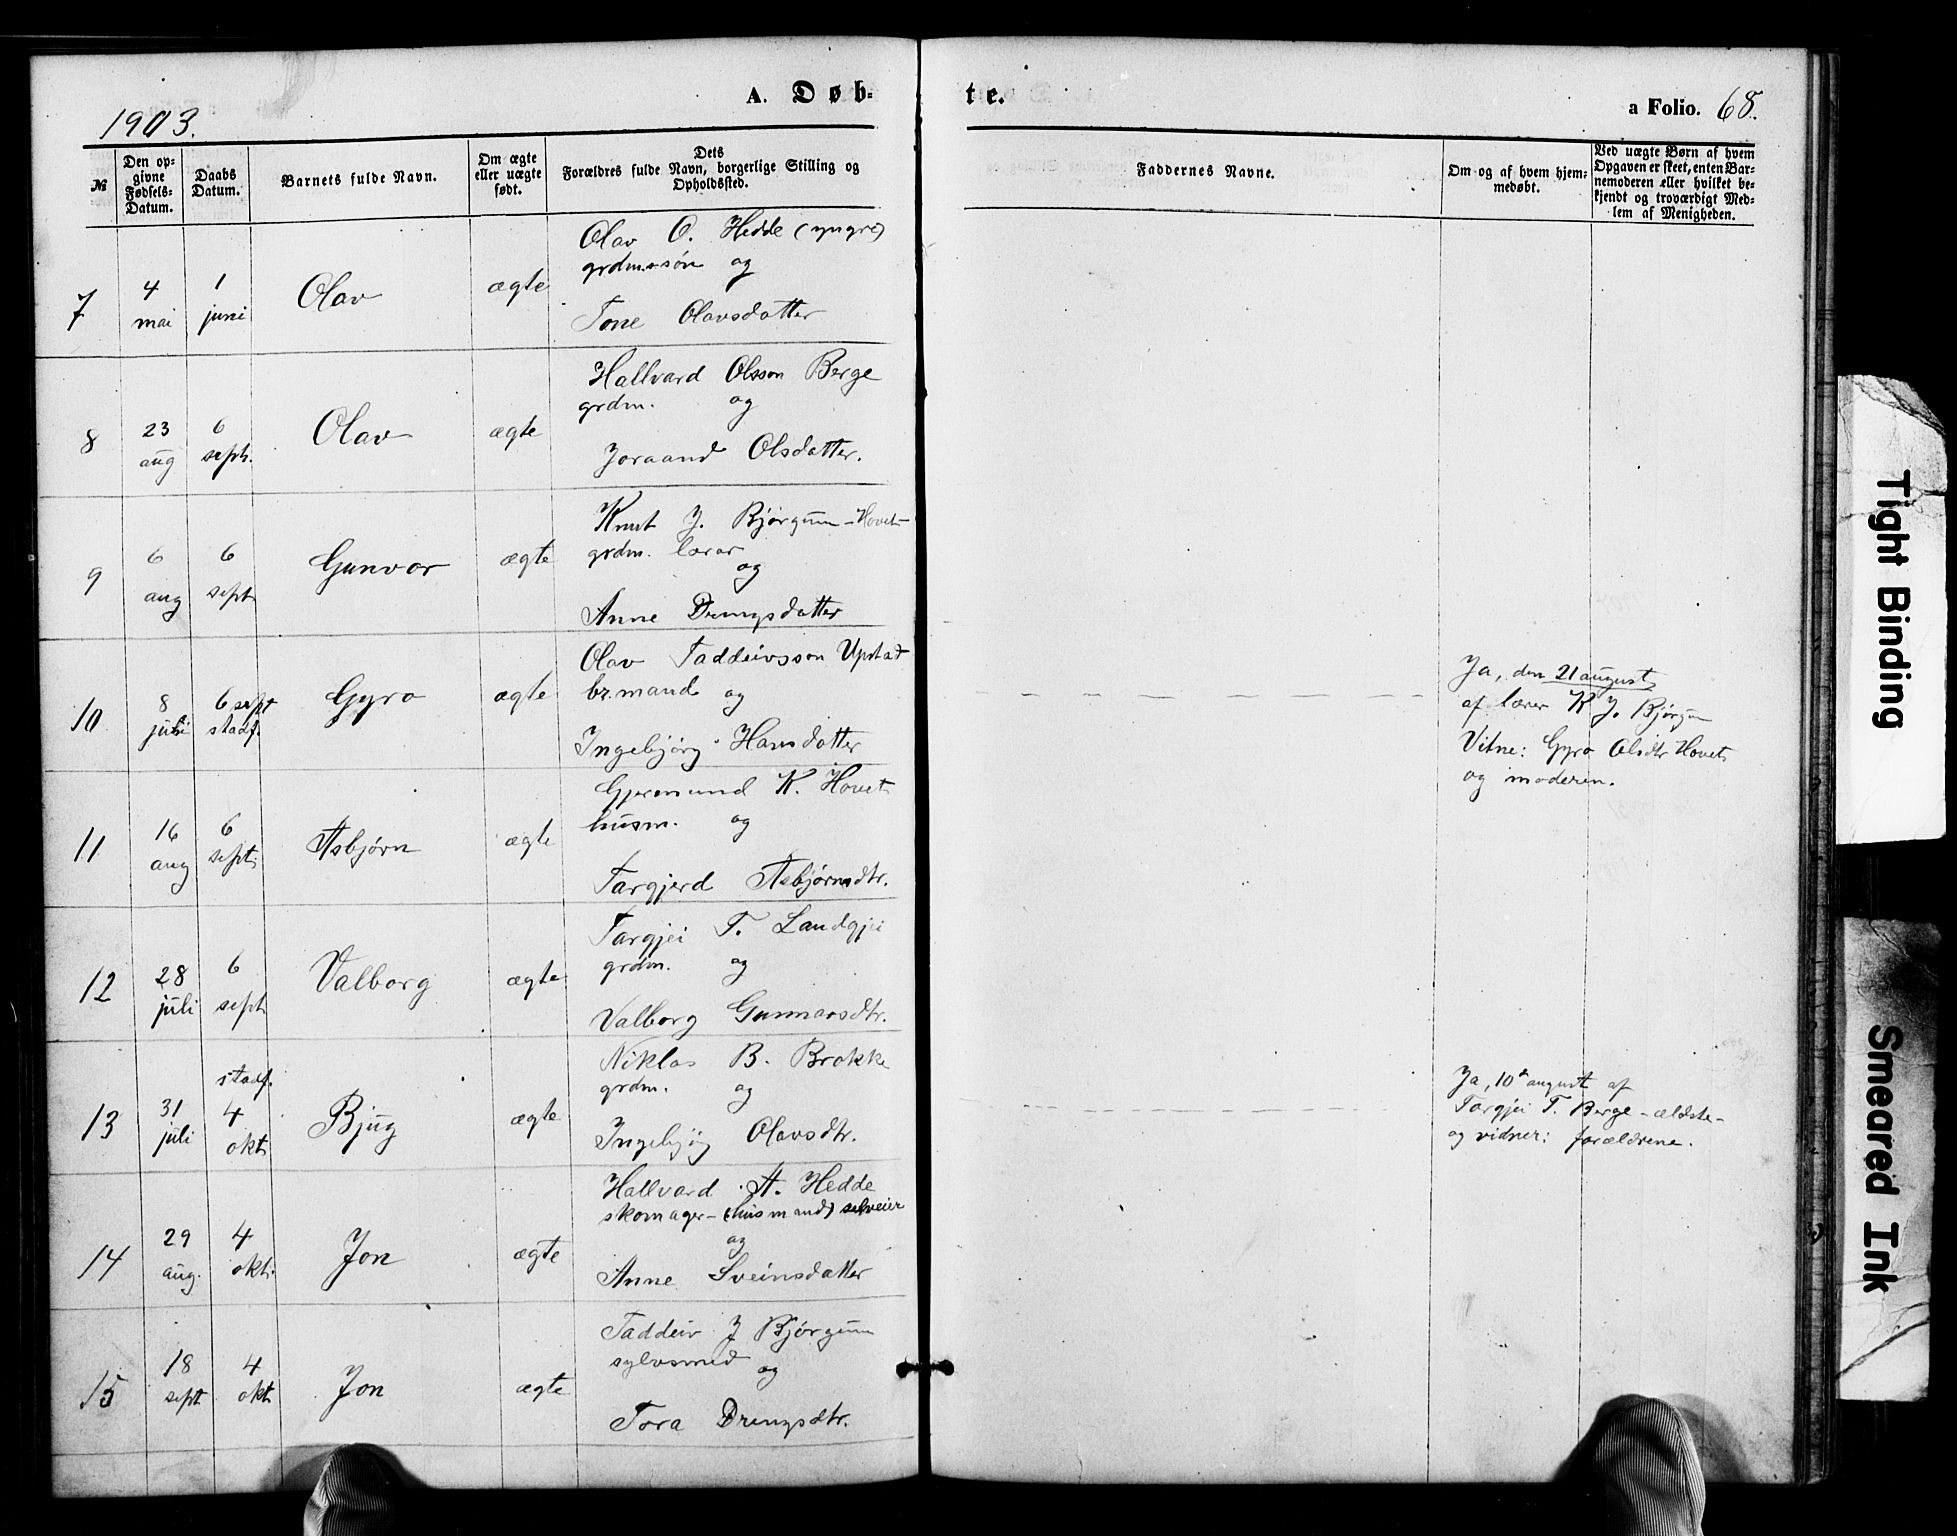 1903.
A. Døb-
te.
a Folio. 68.
№
Den op-
givne
Fødsels-
Datum.
Daabs
Datum.
Barnets fulde Navn.
Om ægte
eller uægte
født.
Dets
Forældres fulde Navn, borgerlige Stilling og
Opholdssted.
Faddernes Navne.
Om og af hvem hjem-
medøbt.
Ved uægte Børn af hvem
Opgaven er skeet, enten Bar-
nemoderen eller hvilket be-
kjendt og troværdigt Med-
lem af Menigheden.
7
4
mai
1
juni
Olav
ægte
Olav O. Hedde (yngre)
grdmssøn og
Tone Olavsdatter
8
23
aug
6
sept.
Olav
ægte
Hallvard Olsson Berge
grdm. og
Joraand Olsdatter.
9
6
aug
6
sept
Gunvor
ægte
Knut J. Bjørgum - Hovet -
grdm. lærar
og
Anne Drengsdatter
10
8
juli
6 sept
stadf.
Gyro
ægte
Olav Taddeivsson Upstad
br.mand og
Ingebjørg Hansdatter
Ja, den 21 august
af lærer K J. Bjørgum
Vitne: Gyro Olsdtr Hovet
og moderen.
11
16
aug
6
sept.
Asbjørn
ægte
Gjermund K. Hovet
husm. og
Targjerd Asbjørnsdtr.
12
28
juli
6
sept
Valborg
ægte
Targjei T. Landgjei
grdm. og
Valborg Gunnarsdtr.
13
31
juli
stadf.
4
okt
Bjug
ægte
Niklas B. Brokke
grdm. og
Ingebjøg Olavsdtr.
Ja, 10de august af
Targjei T. Berge - ældste -
og vidner: forældrene.
14
29
aug.
4
okt.
Jon
ægte
Hallvard A. Hedde
skomager - (husmand) selveier
og
Anne Sveinsdatter
15
18
sept
4
okt
Jon
ægte
Taddeiv J Bjørgum
sylvsmed
og
Tora Drengsdtr.
Tight Binding
Smeared Ink